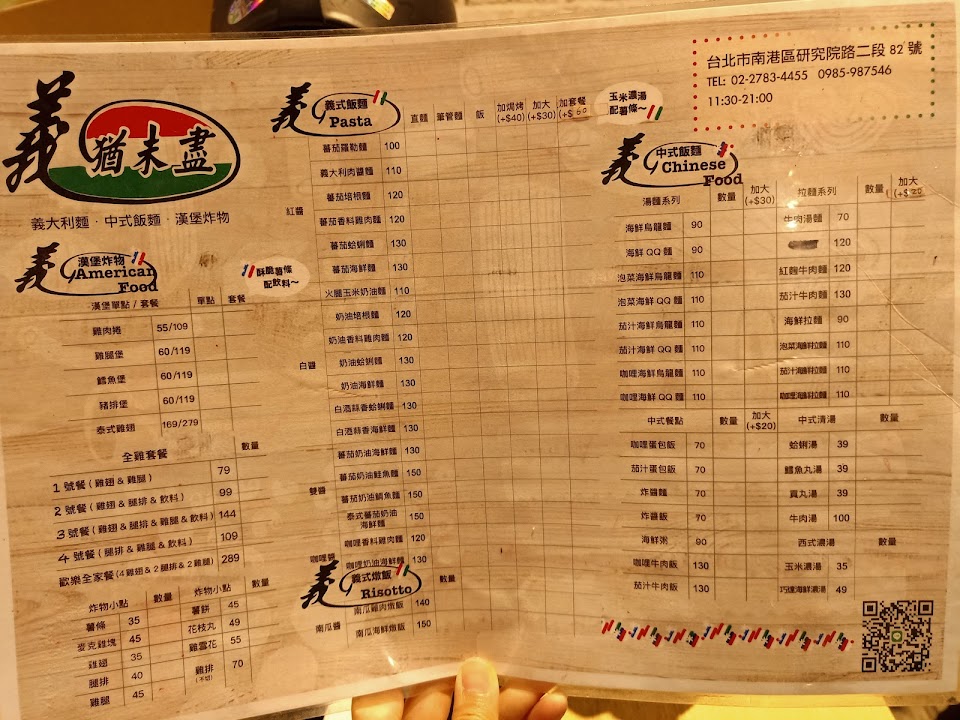 義 猶未盡
義大利麵 · 中式飯麵 · 漢堡炸物
台北市南港區研究院路二段 82 號
TEL: 02-2783-4455 0985-987546
11:30-21:00
義 漢堡炸物
American Food
酥脆薯條
配飲料~
漢堡單點 / 套餐 單點 套餐
雞肉捲 55/109
雞腿堡 60/119
鱈魚堡 60/119
豬排堡 60/119
泰式雞翅 169/279
全雞套餐 數量
1 號餐 ( 雞翅 & 雞腿 ) 79
2 號餐 ( 雞翅 & 腿排 & 飲料 ) 99
3 號餐 ( 雞翅 & 腿排 & 雞腿 & 飲料 ) 144
4 號餐 ( 腿排 & 雞腿 & 飲料 ) 109
歡樂全家餐 (4 雞翅 & 2 腿排 & 2 雞腿) 289
炸物小點 數量 炸物小點 數量
薯條 35 薯餅 45
麥克雞塊 45 花枝丸 49
雞翅 35 雞雲花 55
腿排 40 雞排 (不切) 70
雞腿 45
義 義式飯麵
Pasta
直麵 筆管麵 飯 加焗烤 (+$40) 加大 (+$30) 加套餐 (+$60)
玉米濃湯
配薯條~
紅醬
蕃茄羅勒麵 100
義大利肉醬麵 110
蕃茄培根麵 120
蕃茄香料雞肉麵 120
蕃茄蛤蜊麵 130
蕃茄海鮮麵 130
白醬
火腿玉米奶油麵 110
奶油培根麵 120
奶油香料雞肉麵 120
奶油蛤蜊麵 130
奶油海鮮麵 130
白酒蒜香蛤蜊麵 130
白酒蒜香海鮮麵 130
雙醬
蕃茄奶油海鮮麵 130
蕃茄奶油鮭魚麵 150
蕃茄奶油鯛魚麵 150
泰式蕃茄奶油海鮮麵 150
咖哩醬
咖哩香料雞肉麵 120
咖哩奶油海鮮麵 130
義 義式燉飯
Risotto
數量
南瓜醬
南瓜雞肉燉飯 140
南瓜海鮮燉飯 150
義 中式飯麵
Chinese Food
湯麵系列 數量 加大 (+$30)
海鮮烏龍麵 90
海鮮 QQ 麵 90
泡菜海鮮烏龍麵 110
泡菜海鮮 QQ 麵 110
茄汁海鮮烏龍麵 110
茄汁海鮮 QQ 麵 110
咖哩海鮮烏龍麵 110
咖哩海鮮 QQ 麵 110
拉麵系列 數量 加大
牛肉湯麵 70
120
紅麴牛肉麵 120
茄汁牛肉麵 130
海鮮拉麵 90
泡菜海鮮拉麵 110
茄汁海鮮拉麵 110
咖哩海鮮拉麵 110
中式餐點 數量 加大 (+$20)
咖哩蛋包飯 70
茄汁蛋包飯 70
炸醬麵 70
炸醬飯 70
海鮮粥 90
咖哩牛肉飯 130
茄汁牛肉飯 130
中式清湯 數量
蛤蜊湯 39
鱈魚丸湯 39
貢丸湯 39
牛肉湯 100
西式濃湯 數量
玉米濃湯 35
巧達海鮮濃湯 49